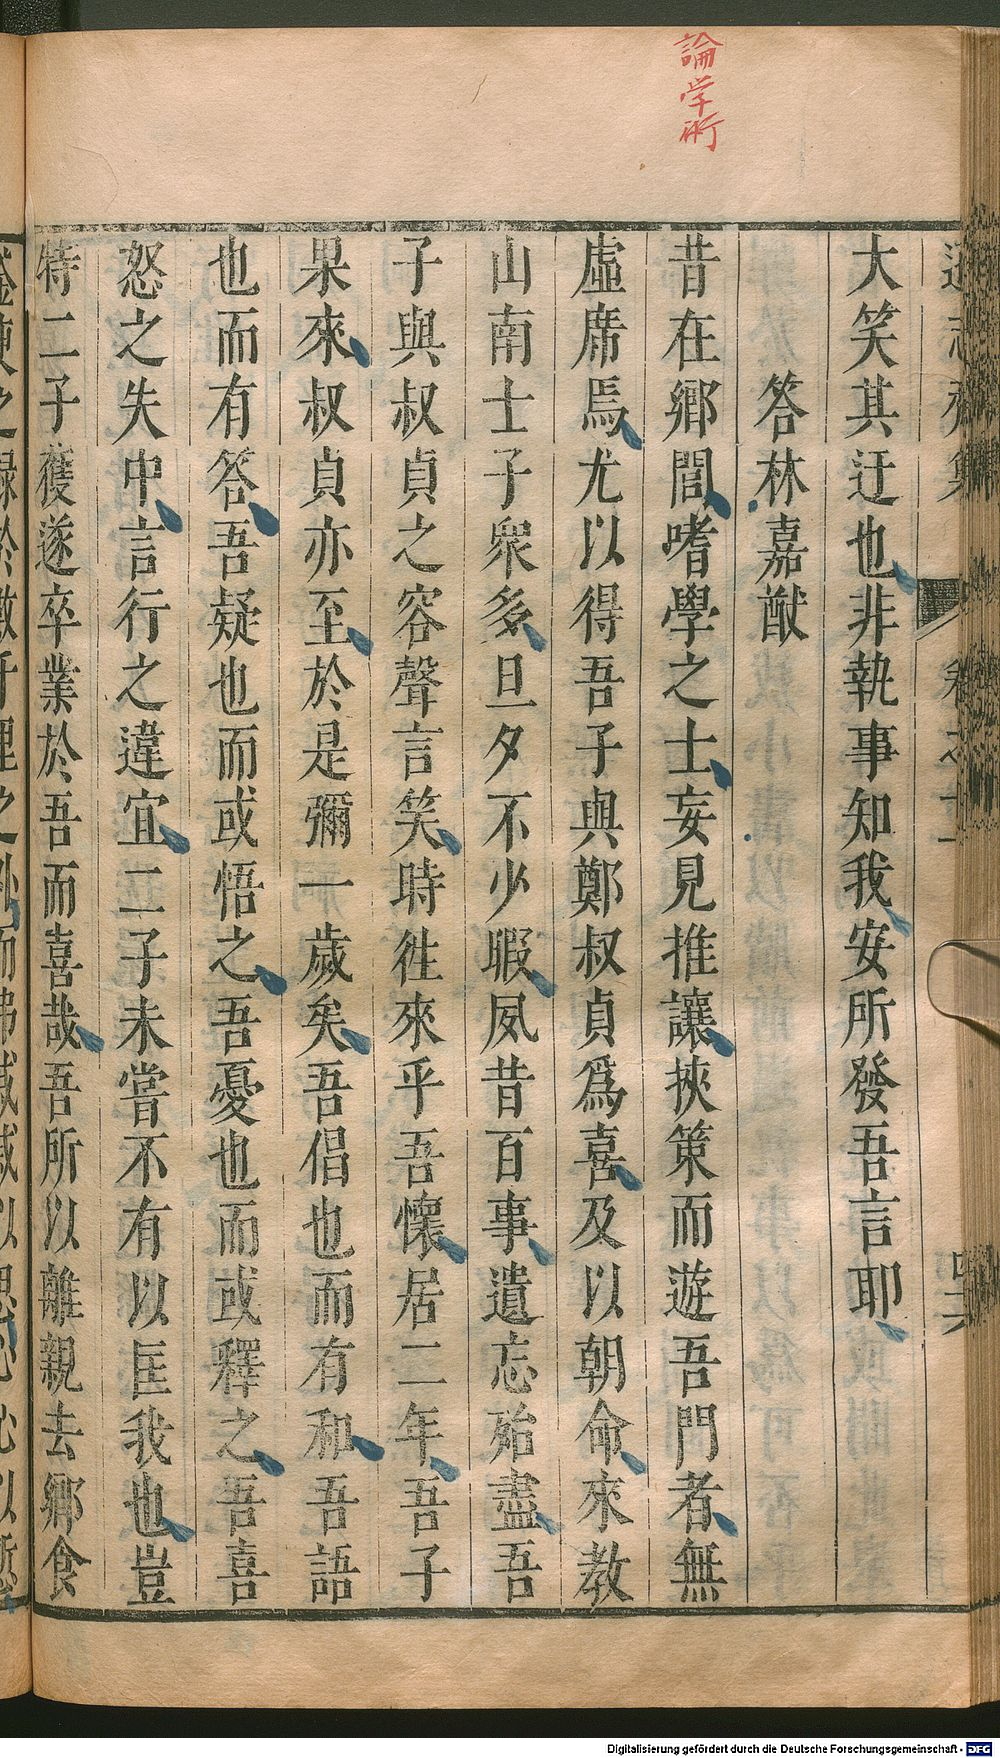 論学術
大笑其迂也非執事知我安所發吾言耶
答林嘉猷
昔在鄉閭嗜學之士妄見推讓挾策而遊吾門者無
虛席焉尤以得吾子與鄭叔貞爲喜及以朝命來教
山南士子衆多旦夕不少暇夙昔百事遺忘殆盡吾
子與叔貞之容聲言笑時徃來乎吾懷居二年吾子
果來叔貞亦至於是彌一歲矣吾倡也而有和吾語
也而有答吾疑也而或悟之吾憂也而或釋之吾喜
怒之失中言行之違宜二子未嘗不有以匡我也豈
特二子獲遂卒業於吾而喜哉吾所以離親去鄉食
Digitalisierung gefördert durch die Deutsche Forschungsgemeinschaft - DFG